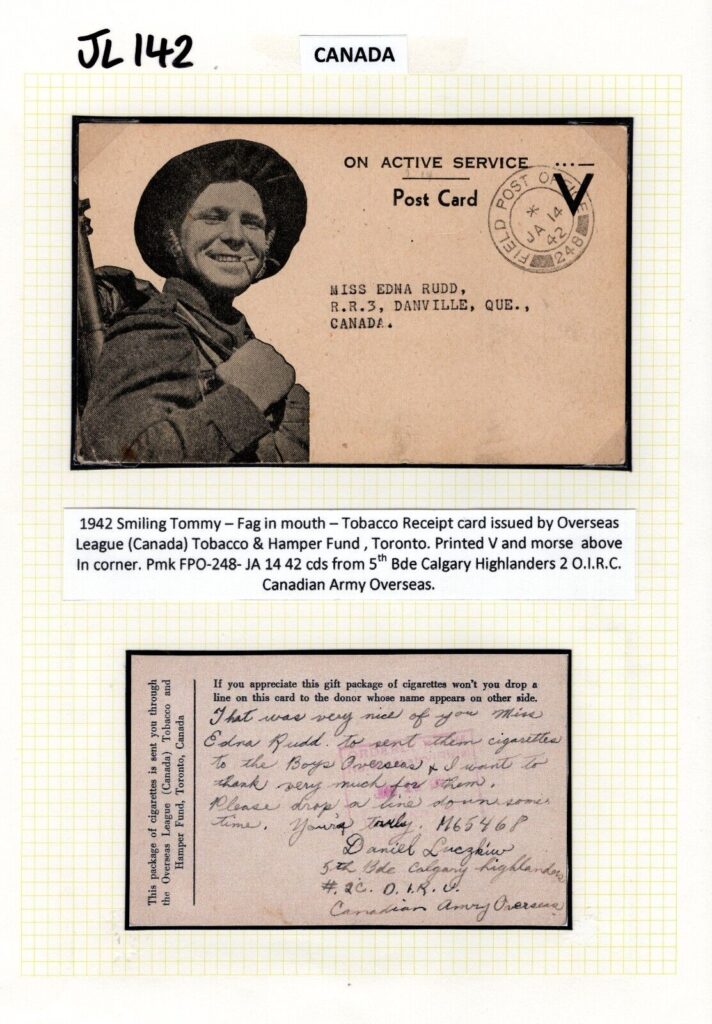 JL 142
CANADA
ON ACTIVE SERVICE
Post Card
FIELD POST OFFICE
*
JA 14
42
248
V
MISS EDNA RUDD,
R.R.3, DANVILLE, QUE.,
CANADA.
1942 Smiling Tommy – Fag in mouth – Tobacco Receipt card issued by Overseas
League (Canada) Tobacco & Hamper Fund , Toronto. Printed V and morse above
In corner. Pmk FPO-248- JA 14 42 cds from 5th Bde Calgary Highlanders 2 O.I.R.C.
Canadian Army Overseas.
This package of cigarettes is sent you through
the Overseas League (Canada) Tobacco and
Hamper Fund, Toronto, Canada
If you appreciate this gift package of cigarettes won't you drop a
line on this card to the donor whose name appears on other side.
That was very nice of you Miss
Edna Rudd. to sent them cigarettes
to the Boys Overseas & I want to
thank very much for them.
Please drop a line down some
time. Your's truly. M65468
Daniel Luczkiw
5th Bde Calgary highlanders
#. 2C. O.I.R.U.
Canadian Amry Overseas